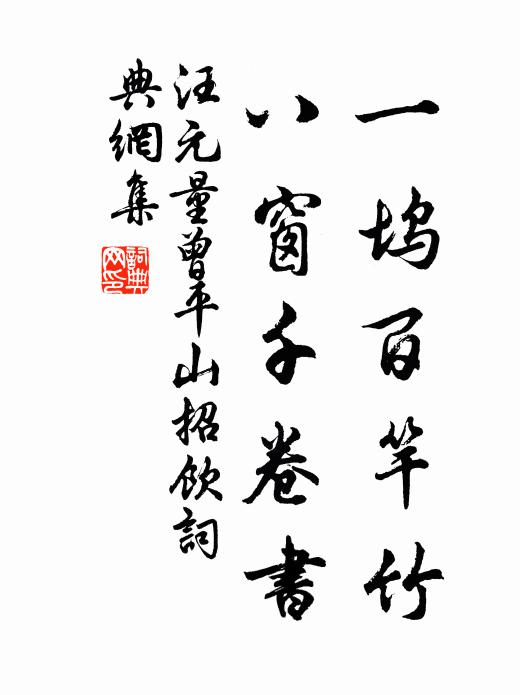 一塢百竿竹
八窗千卷書
汪元量曾平山招飲詞
典網集
詞典網印